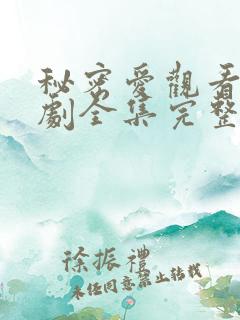 秘密愛觀看
劇全集完整
徐振禮
未經同意禁止轉載